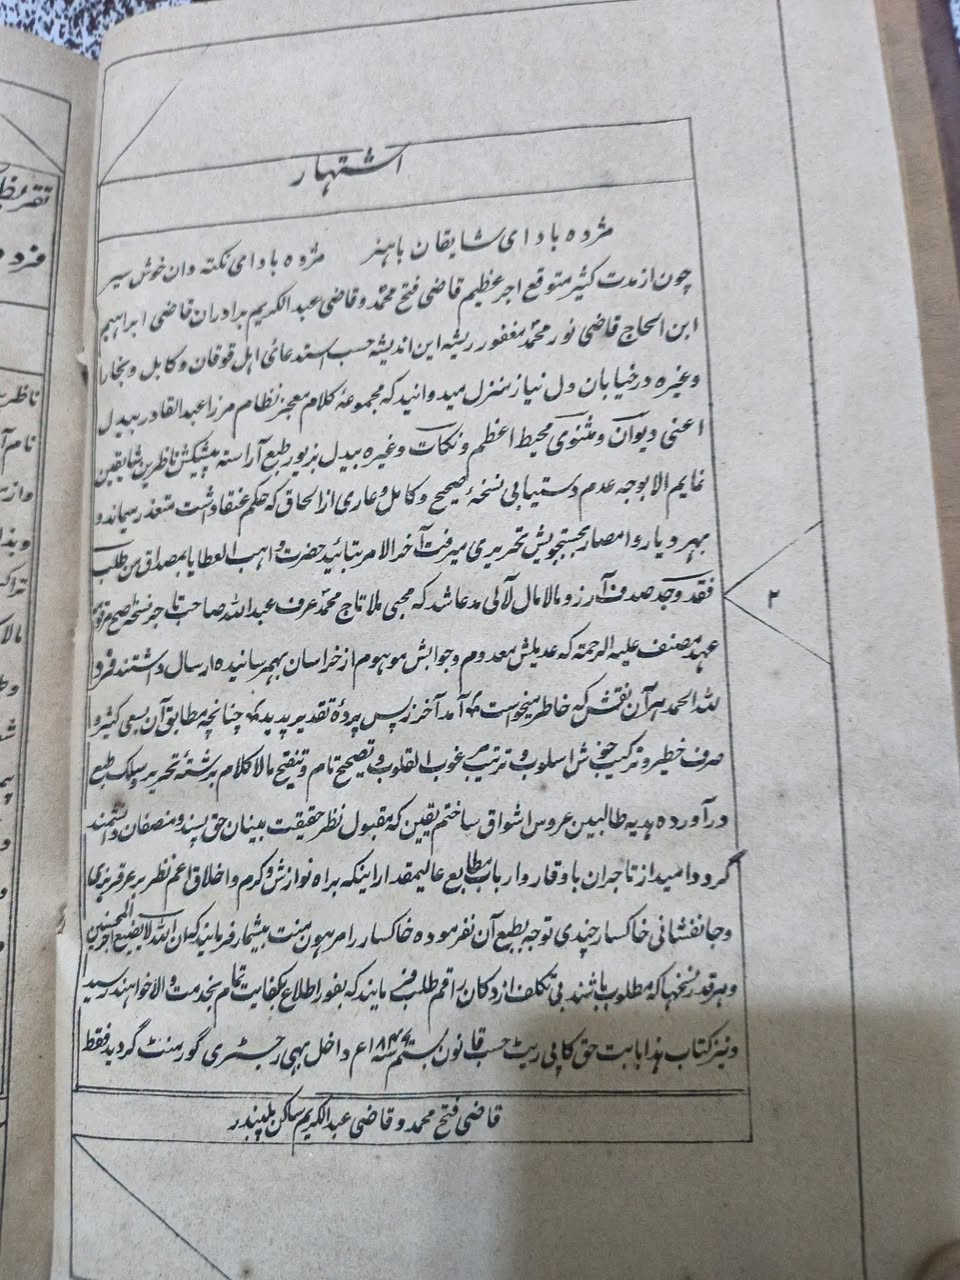 اشتهار
مژده باد ای شایقان باهنر مژده باد ای نکته دان خوش سیر
چون از مدت کثیر متوقع اجر عظیم قاضی فتح محمد و قاضی عبدالکریم برادران قاضی ابراهیم
ابن الحاج قاضی نور محمد مغفور ریشه این اندیشه حسب استدعائی اهل قوقان و کابل و بخارا
وغیره در خیابان دل نیاز منزل میدوانید که مجموعهٔ کلام معجز نظام مرزا عبدالقادر بیدل
اعنی دیوان و مثنوی محیط اعظم و نکات وغیره بیدل بزیور طبع آراسته پیشکش ناظرین شایقین
نمایم الا بوجه عدم دستیابی نسخهٔ صحیح و کامل و عاری از الحاق که حکم عنقا داشت متعذر میماند و
بهر دیار و امصار بجستجویش تحریری میرفت آخر الامر بتائید حضرت واهب العطایا بمصداق من طلب
فقد وجد صدف آرزو مالامال لآلی مدعا شد که محبی ملا تاج محمد عرف عبدالله صاحب تاجر نسخهٔ اصح مرقومه
عهد مصنف علیه الرحمته که عدیلش معدوم وجوابش موهوم از خراسان بهم رسانیده ارسال داشتند فرد
لله الحمد هر آن نقش که خاطر میخواست آمد آخر ز پس پردهٔ تقدیر پدید چنانچه مطابق آن بسعی کثیر و
صرف خطیر و ترکیب خوش اسلوب و ترتیب مرغوب القلوب و تصحیح تام و تنقیح مالا کلام برشتهٔ تحریر بسلک طبع
در آورده هدیه طالبین عروس اشواق ساختم یقین که مقبول نظر حقیقت بینان حق پسند و منصفان دانشمند
گردد امید از تاجران باوقار و ارباب مطابع عالیمقدار اینکه براه نوازش و کرم و اخلاق اعم نظر بر عرقریزی
و جانفشانی خاکسار چندی توجه بطبع آن نفرموده خاکسار را مرهون منت بیشمار فرمایند که ان الله لا یضیع اجر المحسنین
و هر قدر نسخها که مطلوب باشند بی تکلف از دکان راقم طلب فرمایند که بفور اطلاع بکفایت تمام بخدمت والا خواهند رسید
و نیز کتاب هذا بابت حق کاپی ریٹ حسب قانون بستم سنه ۱۸۴۷ع داخل بهی رجسٹری گورمنٹ گردید فقط
قاضی فتح محمد و قاضی عبدالکریم ساکن پلبندر
۲